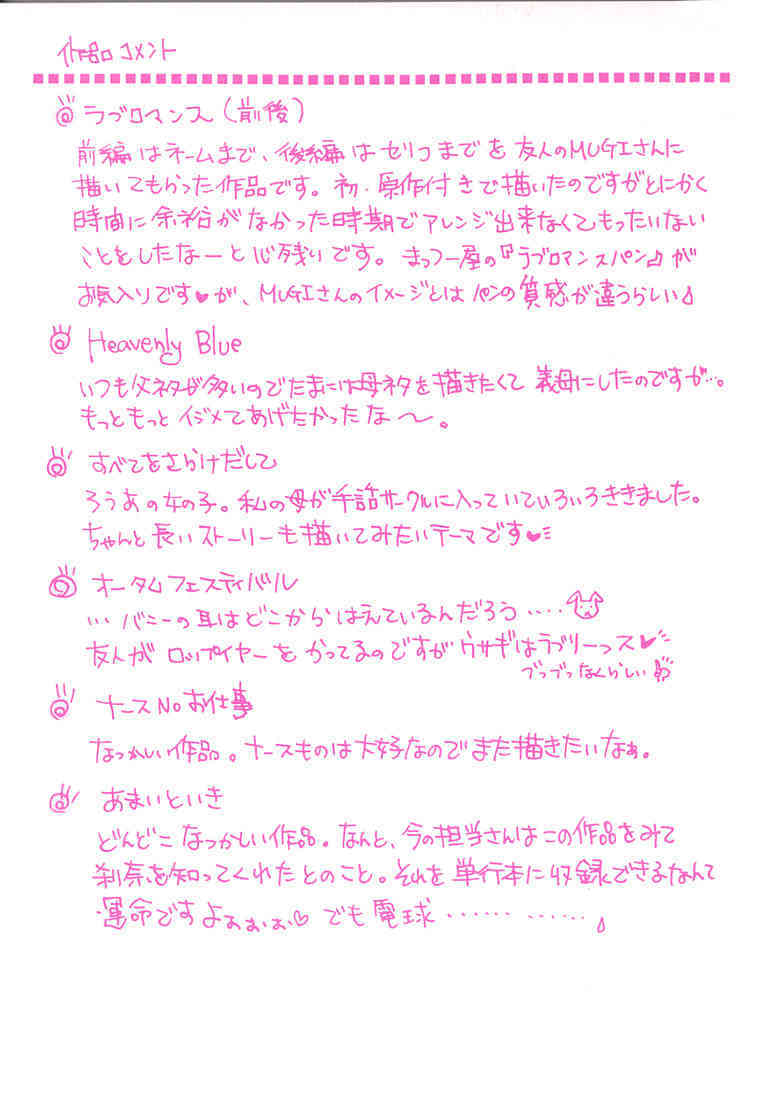 作品コメント
ラブロマンス(前後)
前編はネームまで、後編はセリフまでを友人のMUGIさんに
描いてもらった作品です。初・原作付きで描いたのですがとにかく
時間に余裕がなかった時期でアレンジ出来なくてもったいない
ことをしたなーと心残りです。まっつー屋の『ラブロマンスパン』が
お気入りです♥が、MUGIさんのイメージとはパンの質感が違うらしい
Heavenly Blue
いつも父ネタが多いのでたまには母ネタを描きたくて義母にしたのですが…。
もっともっとイジメてあげたかったな〜。
すべてをさらけだして
ろうあの女の子。私の母が手話サークルに入っていていろいろききました。
ちゃんと長いストーリーも描いてみたいテーマです♥
オータムフェスティバル
…バニーの耳はどこからはえているんだろう‥‥
友人がロップイヤーをかってるのですがウサギはラブリーっス♥
ブゥブゥなくらしい
ナースNoお仕事
なつかしい作品。ナースものは大好なのでまた描きたいなぁ。
あまいといき
どんどこなつかしい作品。なんと、今の担当さんはこの作品をみて
刹奈を知ってくれたとのこと。それを単行本に収録できるなんて
運命ですよぉぉぉ♡でも電球‥‥‥ ‥‥‥